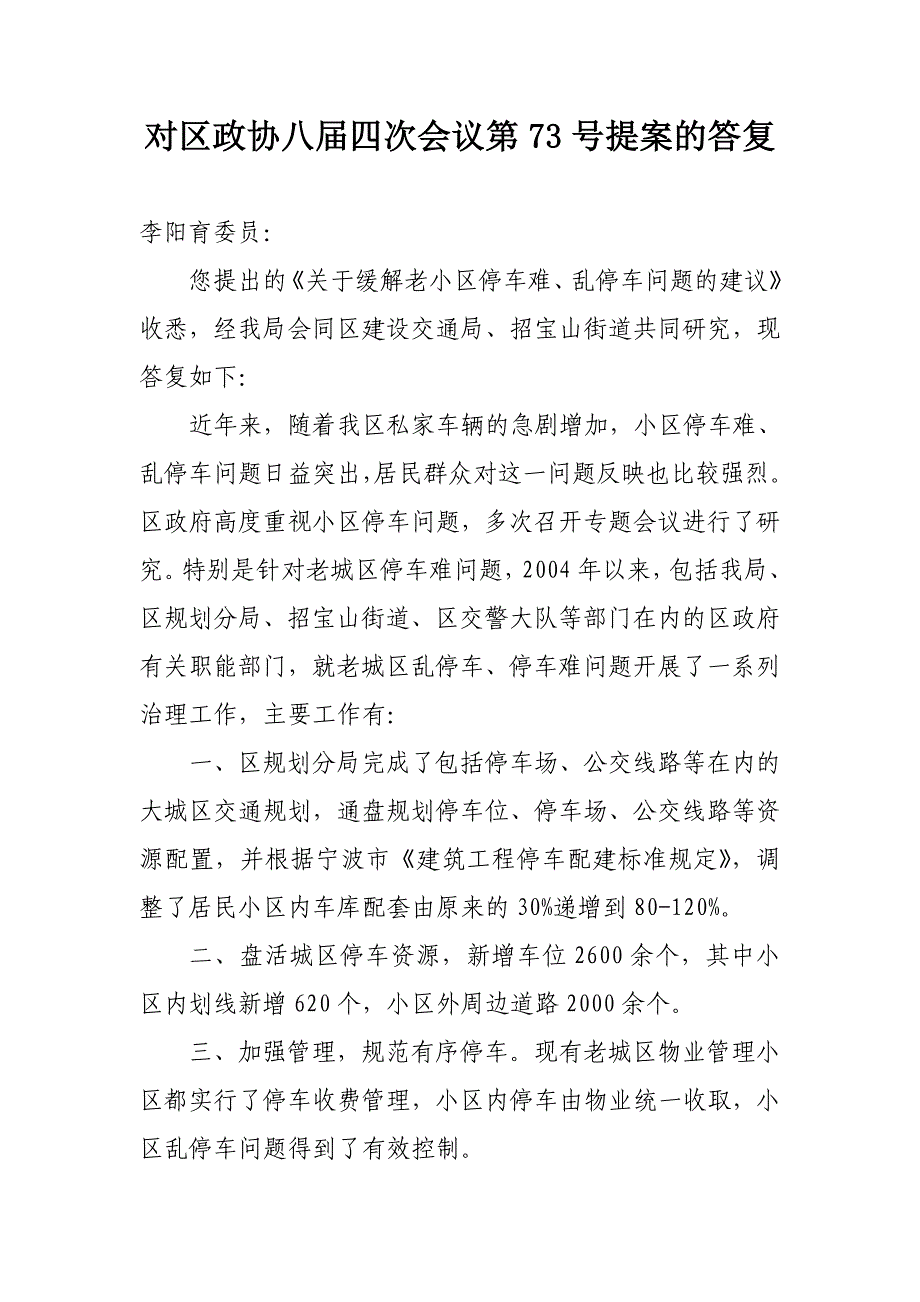 对区政协八届四次会议第 73 号提案的答复
李阳育委员：
您提出的《关于缓解老小区停车难、乱停车问题的建议》
收悉，经我局会同区建设交通局、招宝山街道共同研究，现
答复如下：
近年来，随着我区私家车辆的急剧增加，小区停车难、
乱停车问题日益突出，居民群众对这一问题反映也比较强烈。
区政府高度重视小区停车问题，多次召开专题会议进行了研
究。特别是针对老城区停车难问题，2004 年以来，包括我局、
区规划分局、招宝山街道、区交警大队等部门在内的区政府
有关职能部门，就老城区乱停车、停车难问题开展了一系列
治理工作，主要工作有：
一、区规划分局完成了包括停车场、公交线路等在内的
大城区交通规划，通盘规划停车位、停车场、公交线路等资
源配置，并根据宁波市《建筑工程停车配建标准规定》，调
整了居民小区内车库配套由原来的 30%递增到 80-120%。
二、盘活城区停车资源，新增车位 2600 余个，其中小
区内划线新增 620 个，小区外周边道路 2000 余个。
三、加强管理，规范有序停车。现有老城区物业管理小
区都实行了停车收费管理，小区内停车由物业统一收取，小
区乱停车问题得到了有效控制。